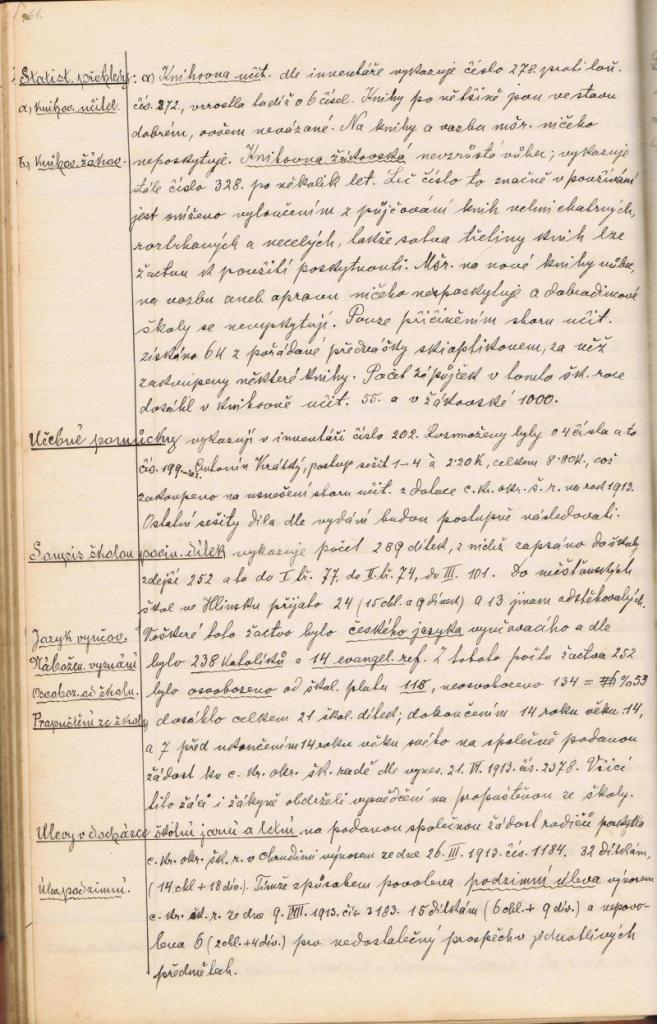 Statist. přehledy: a) Knihovna učit. dle inventáře vykazuje číslo 278. proti loň.
a, knihov. učitel. čís. 272, vzrostla tudíž o 6 čísel. Knihy po většině jsou ve stavu
dobrém, ovšem nevázané. Na knihy a vazbu míst. ničeho
b, knihov. žákov. neposkytuje. Knihovna žákovská nevzrůstá vůbec; vykazuje
stále číslo 328. po několik let. Leč číslo to značně v používání
jest sníženo vyloučením z půjčování knih velmi chatrných,
roztrhaných a necelých, takže sotva třetiny knih lze
žactvu k použití poskytnouti. na nové knihy vůbec,
na vazbu aneb opravu ničeho neposkytuje a dobrodincové
školy se nevyskytují. Pouze přičiněním sboru učit.
získáno 6 K z pořádané přednášky skioptikonem, za něž
zakoupeny některé knihy. Počet zápůjček v tomto šk. roce
dosáhl v knihovně učit. 55. a v žákovské 1000.
Učebné pomůcky vykazují v inventáři číslo 202. Rozmoženy byly o 4 čísla a to
čís. 199-202. Antonín Krátký, postup sešit 1-4 à 2.20 K, celkem 8.80 K, což
zakoupeno na usnešení sboru učit. z dotace c. kr. okr. š. r. na rok 1913.
Ostatní sešity díla dle vydání budou postupně následovati.
Soupis školou povin. dítek vykazuje počet 289 dítek, z nichž zapsáno do školy
zdejší 252 a to do I. tř. 77, do II. tř. 74, do III. 101. Do měšťanských
škol ve Hlinsku přijato 24 (15 chl. a 9 dívek) a 13 jinam odstěhovalých.
Jazyk vyučov. Veškeré toto žactvo bylo českého jazyka vyučovacího a dle
Nábožen. vyznání bylo 238 katolíků a 14 evangel. ref. Z tohoto počtu žactva 252
Osvoboz. od školn. bylo osvobozeno od škol. platu 118, neosvobozeno 134 = % 53
Propuštění ze školy dosáhlo celkem 21 škol. dítek; dokončením 14 roku věku 14,
a 7 před ukončením 14 roku věku svého na společně podanou
žádost ku c. kr. okr. šk. radě dle vynes. 21. VI. 1913. čís. 2378. Všici
tito žáci i žákyně obdrželi vysvědčení na propuštěnou ze školy.
Úlevy v docházce školní jarní a letní na podanou společnou žádost rodičů poskytla
c. kr. okr. šk. r. v Chrudimi výnosem ze dne 26. III. 1913. čís. 1184. 32 dítkám,
Úleva podzimní. (14 chl + 18 dív.) Týmže způsobem povolena podzimní úleva výnosem
c. kr. šk. r. ze dne 9. VIII. 1913. čís. 3183. 15 dítkám (6 chl. + 9 dív.) a nepovo-
lena 6 (2 chl. + 4 dív.) pro nedostatečný prospěch v jednotlivých
předmětech.